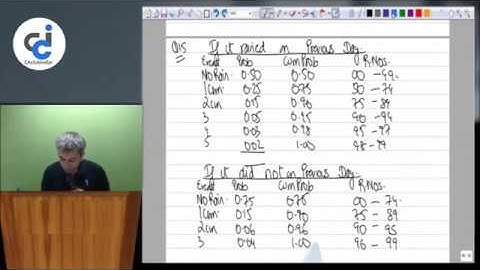 CAclubindia
Q15 If it rained on Previous Day
Event Prob Cum Prob R.Nos.
No Rain 0.50 0.50 00 – 49
1 cm 0.25 0.75 50 – 74
2 cm 0.15 0.90 75 – 89
3 0.05 0.95 90 – 94
4 0.03 0.98 95 – 97
5 0.02 1.00 98 – 99
If it did not on Previous Day
Event Prob Cum Prob R.Nos.
No Rain 0.75 0.75 00 – 74
1 cm 0.15 0.90 75 – 89
2 cm 0.06 0.96 90 – 95
3 0.04 1.00 96 – 99